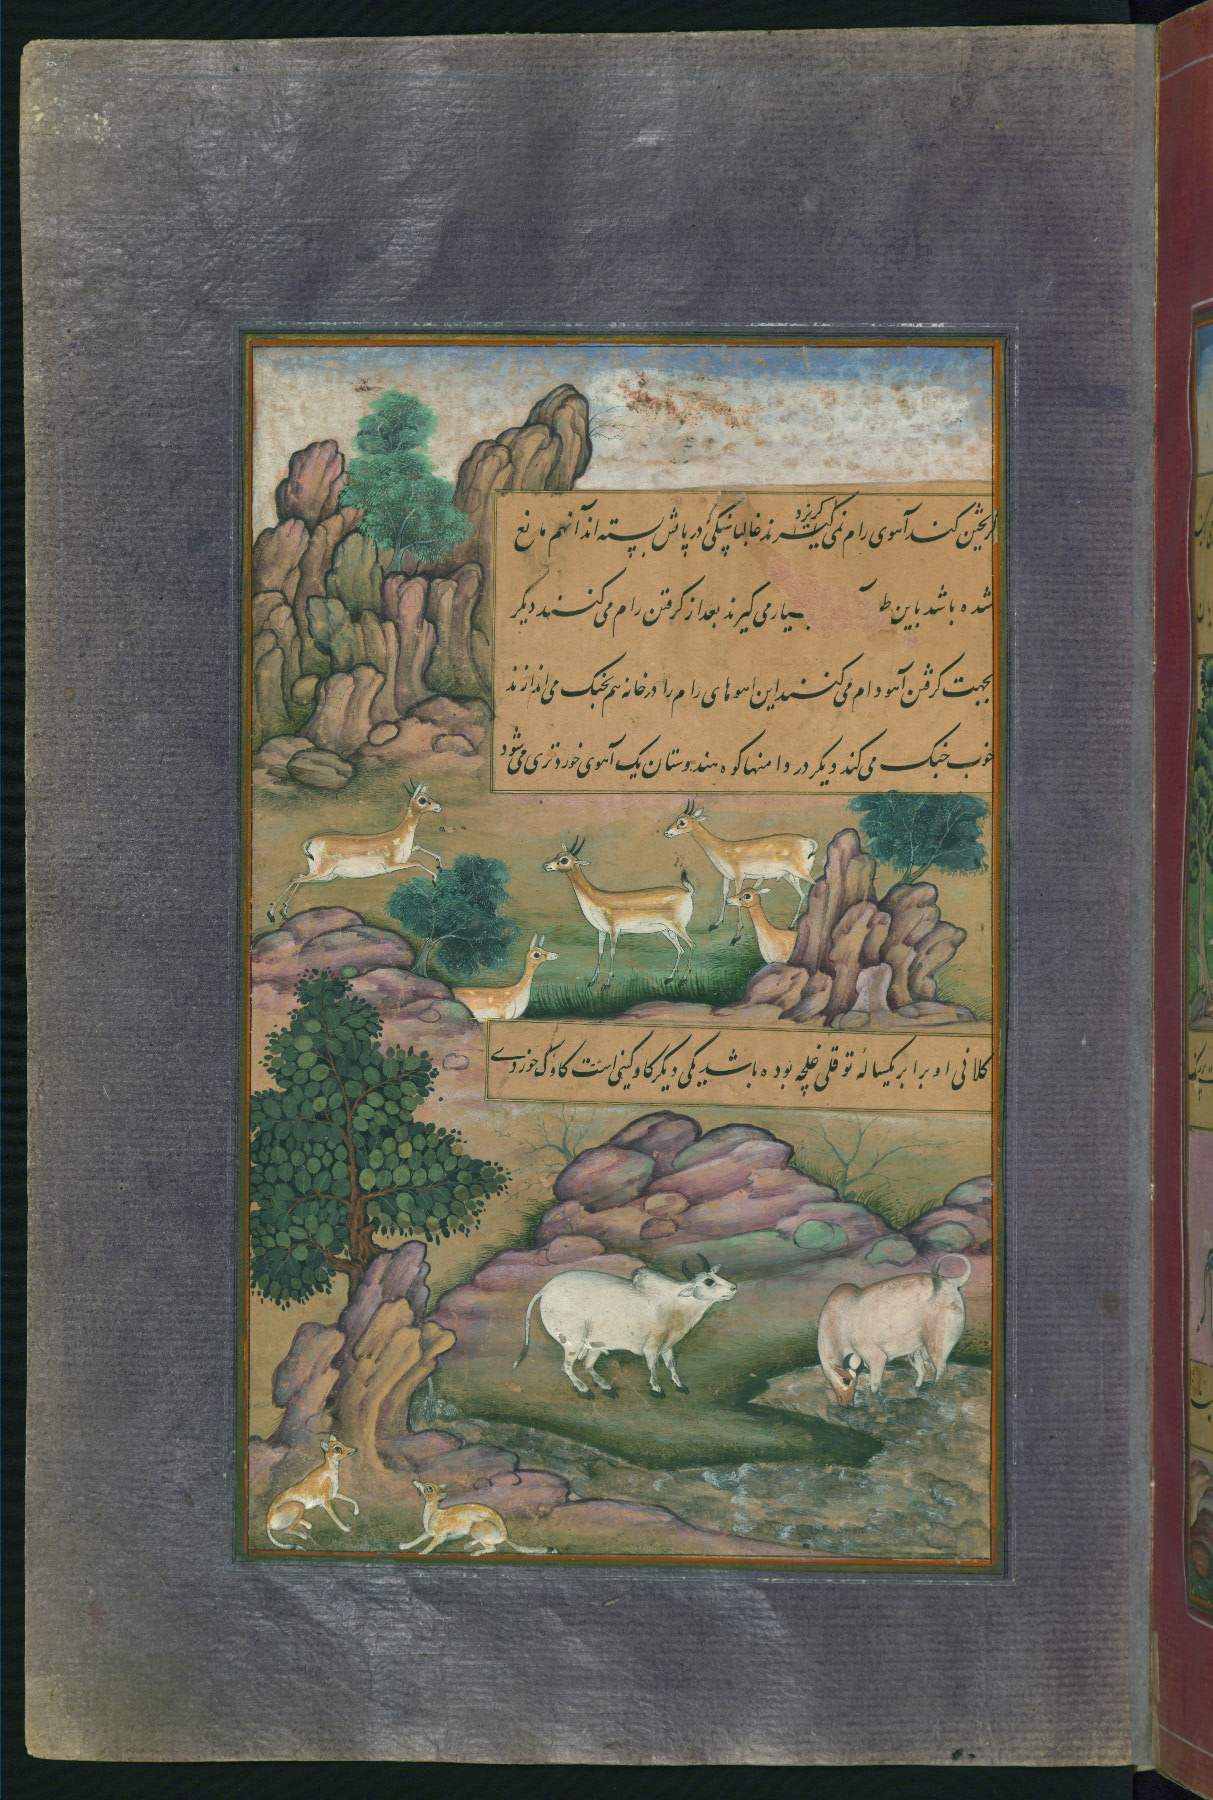 گریختن کند آهوی رام نمی گیرند غالبا سنگی در پاش بسته اند آنهم مانع
گریزد
شده باشد باین بسیار می گیرند بعد از گرفتن رام می کنند دیگر
بجهت گرفتن آهو دام می کنند این اهوهای رام را در خانه هم بجنک می اندازند
خوب جنک می کند دیگر در دامنهای کوه هندوستان یک آهوی خوردتری می شود
کلانی او برابر یکساله توقلی غلچه بوده باشد یکی دیگر کاو کینی است کاوک خوردی